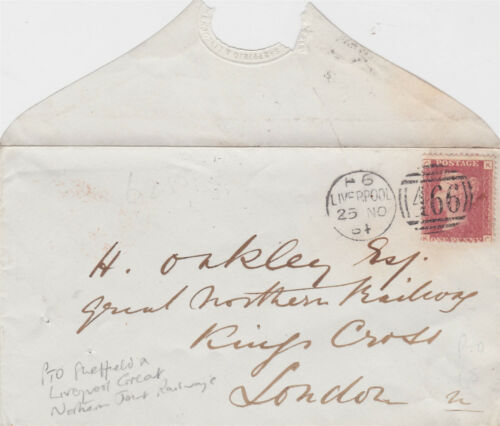 POSTAGE
LIVERPOOL
25 NO
466
ONE PENNY
H. Oakley Esq.
Great Northern Railway
Kings Cross
London
n
PTO Sheffield &
Liverpool Great
Northern Joint Railways